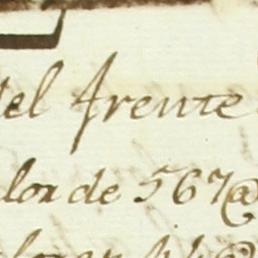 el frente
lor de 567@